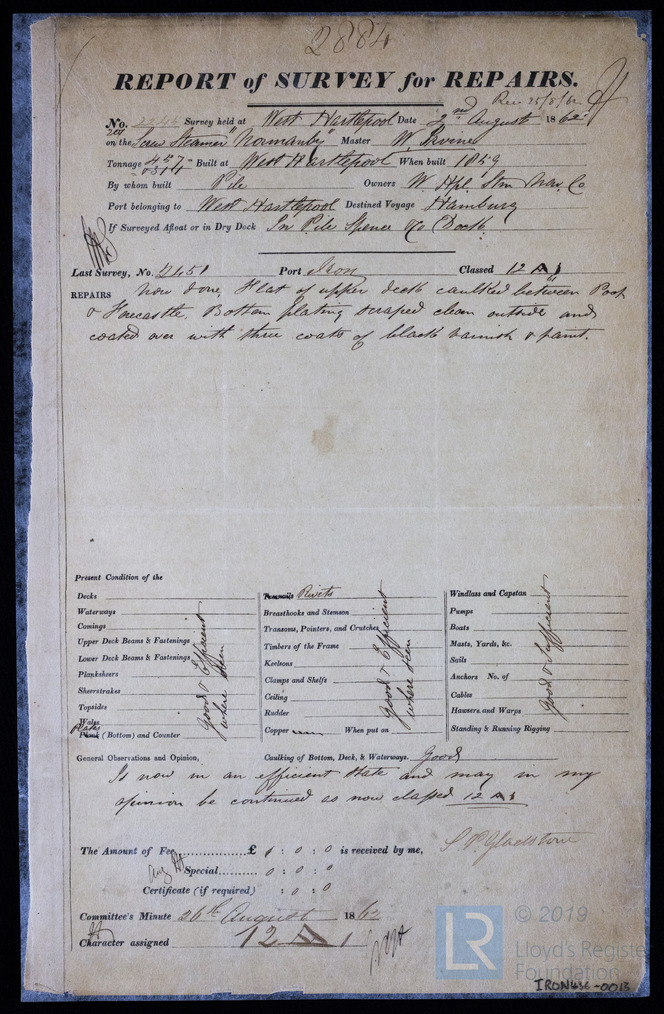 2884
REPORT of SURVEY for REPAIRS.
Rec 25/8/62
No. 2246 Survey held at West Hartlepool Date 2nd August 1862
on the Screw Steamer "Normanby" Master W. Irvine
Tonnage 457 Built at West Hartlepool When built 1859
By whom built Pile Owners W. Hpl. Stm Nav. Co
Port belonging to West Hartlepool Destined Voyage Hamburg
If Surveyed Afloat or in Dry Dock In Pile Spence & Co Dock.
Last Survey, No. 2451 Port Iron Classed 12 A 1
REPAIRS Now done, Flat of upper deck caulked between Poop
& Forecastle, Bottom plating scraped clean outside and
coated over with three coats of black varnish & paint.
Present Condition of the
Decks
Waterways
Comings
Upper Deck Beams & Fastenings
Lower Deck Beams & Fastenings
Planksheers
Sheerstrakes
Topsides
Wales
Plates
Plank (Bottom) and Counter
Good & Efficient
where seen
Treenails Rivets
Breasthooks and Stemson
Transoms, Pointers, and Crutches
Timbers of the Frame
Keelsons
Clamps and Shelfs
Ceiling
Rudder
Copper When put on
Good & Efficient
where seen
Windlass and Capstan
Pumps
Boats
Masts, Yards, &c.
Sails
Anchors No. of
Cables
Hawsers and Warps
Standing & Running Rigging
Good & Sufficient
General Observations and Opinion, Caulking of Bottom, Deck, & Waterways. Good
Is now in an efficient state and may in my
opinion be continued as now classed 12 A 1
The Amount of Fee £ 1 : 0 : 0 is received by me,
Special 0 : 0 : 0
Certificate (if required) : 0 : 0
S P Gladstone
Committee's Minute 26th August 1862
Character assigned 12 A 1
LR
© 2019
Lloyd's Registe
Foundation
IRON436-0013